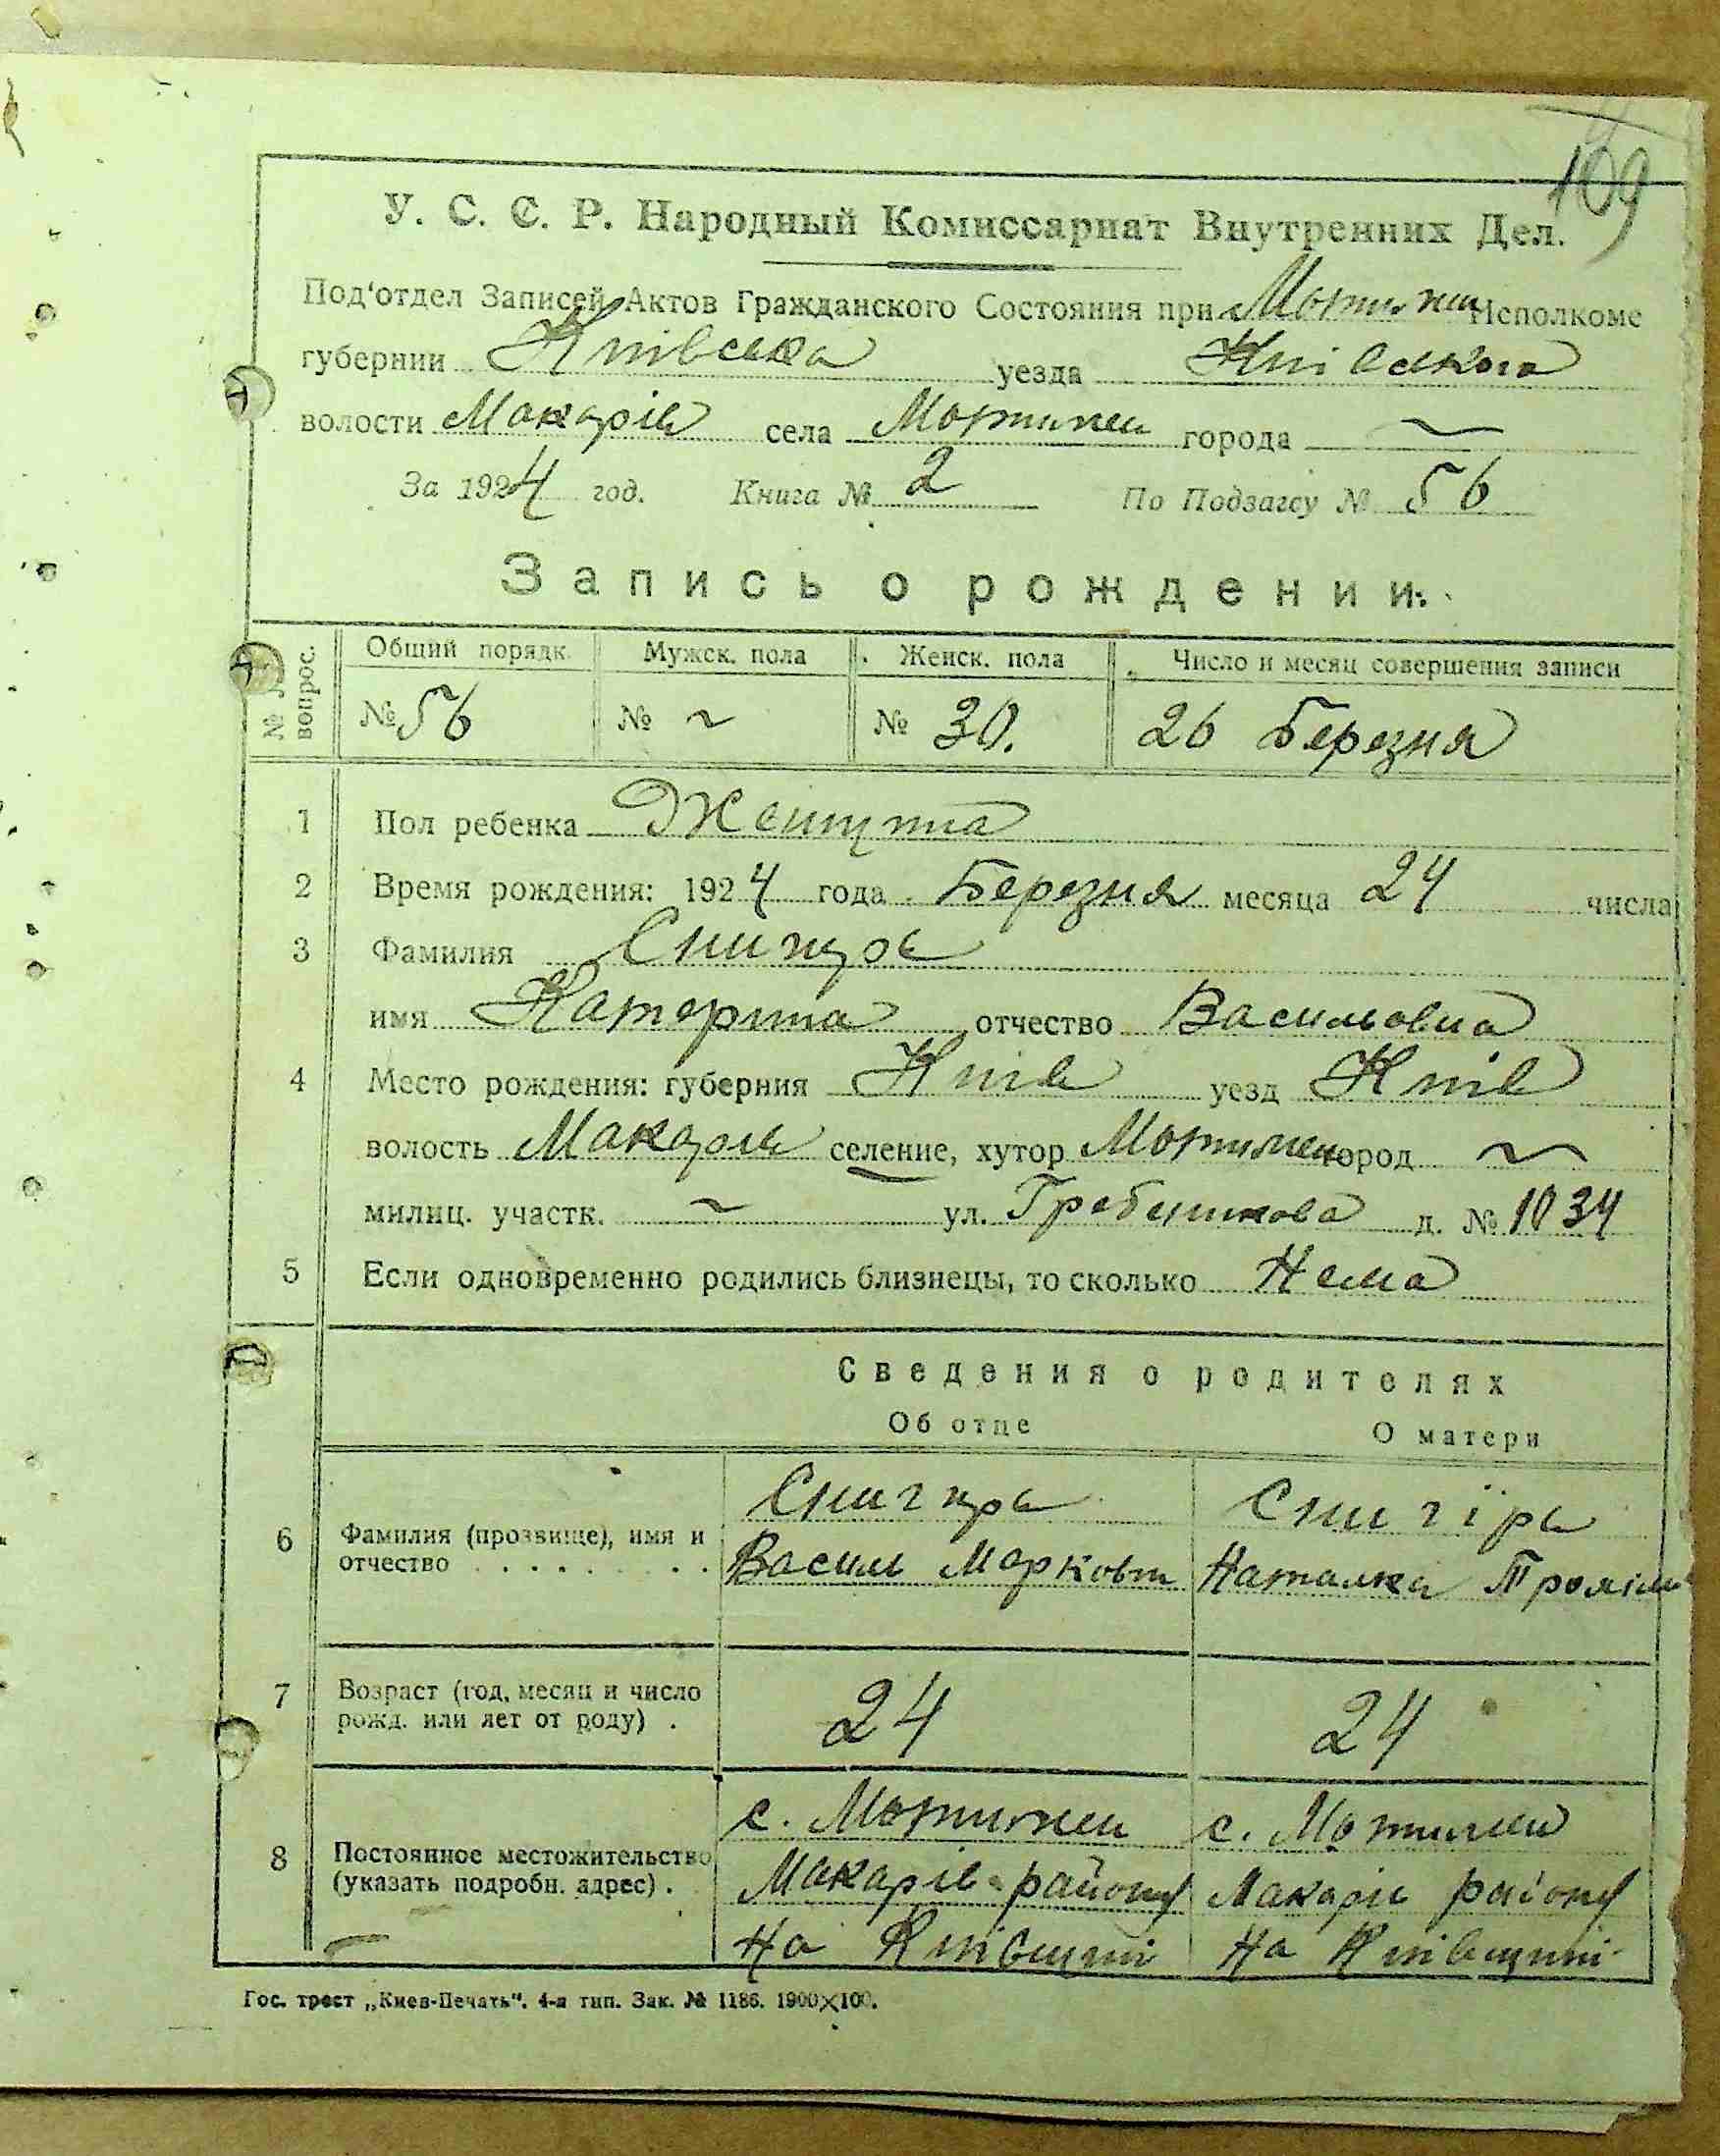 109
У. С. С. Р. Народный Комиссариат Внутренних Дел.
Под‘отдел Записей Актов Гражданского Состояния при Мотижин Исполкоме
губернии Київська уезда Київського
волости Макарів села Мотижин города ~
За 1924 год. Книга № 2 По Подзагсу № 56
Запись о рождении.
№ № вопрос. Общий порядк. Мужск. пола Женск. пола Число и месяц совершения записи
№ 56 № ~ № 30. 26 Березня
1 Пол ребенка Женщина
2 Время рождения: 1924 года Березня месяца 24 числа
3 Фамилия
имя Катерина отчество Васильовна
4 Место рождения: губерния Київ уезд Київ
волость Макарів селение, хутор Мотижин город ~
милиц. участк. ~ ул. д. № 1034
5 Если одновременно родились близнецы, то сколько Нема
Сведения о родителях
Об отце О матери
6 Фамилия (прозвище), имя и отчество Снигирь Снигірь
Василь Маркович Наталка
7 Возраст (год, месяц и число рожд. или лет от роду) . 24 24
8 Постоянное местожительство (указать подробн. адрес) . с. Мотижин с. Мотижин
Макарів району Макарів району
на Київщині на Київщині
Гос. трест „Киев-Печать“. 4-я тип. Зак. № 1186. 1900×100.